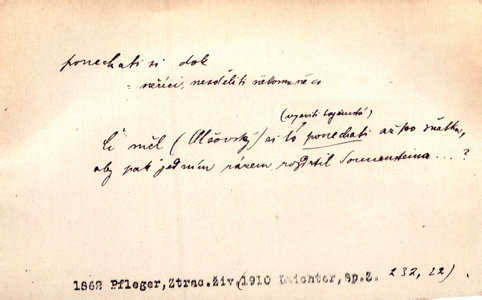 ponechati si dok
neříci, nesděliti někomu něco
(vyjeviti tajemství)
Či měl (Olšovský) si to ponechati až po sňatku,
aby pak jedním rázem rozdrtil Sonnensteina ... ?
1862 Pfleger, Ztrac. živ. (1910 Laichter, Sp. 2. 232, 22)